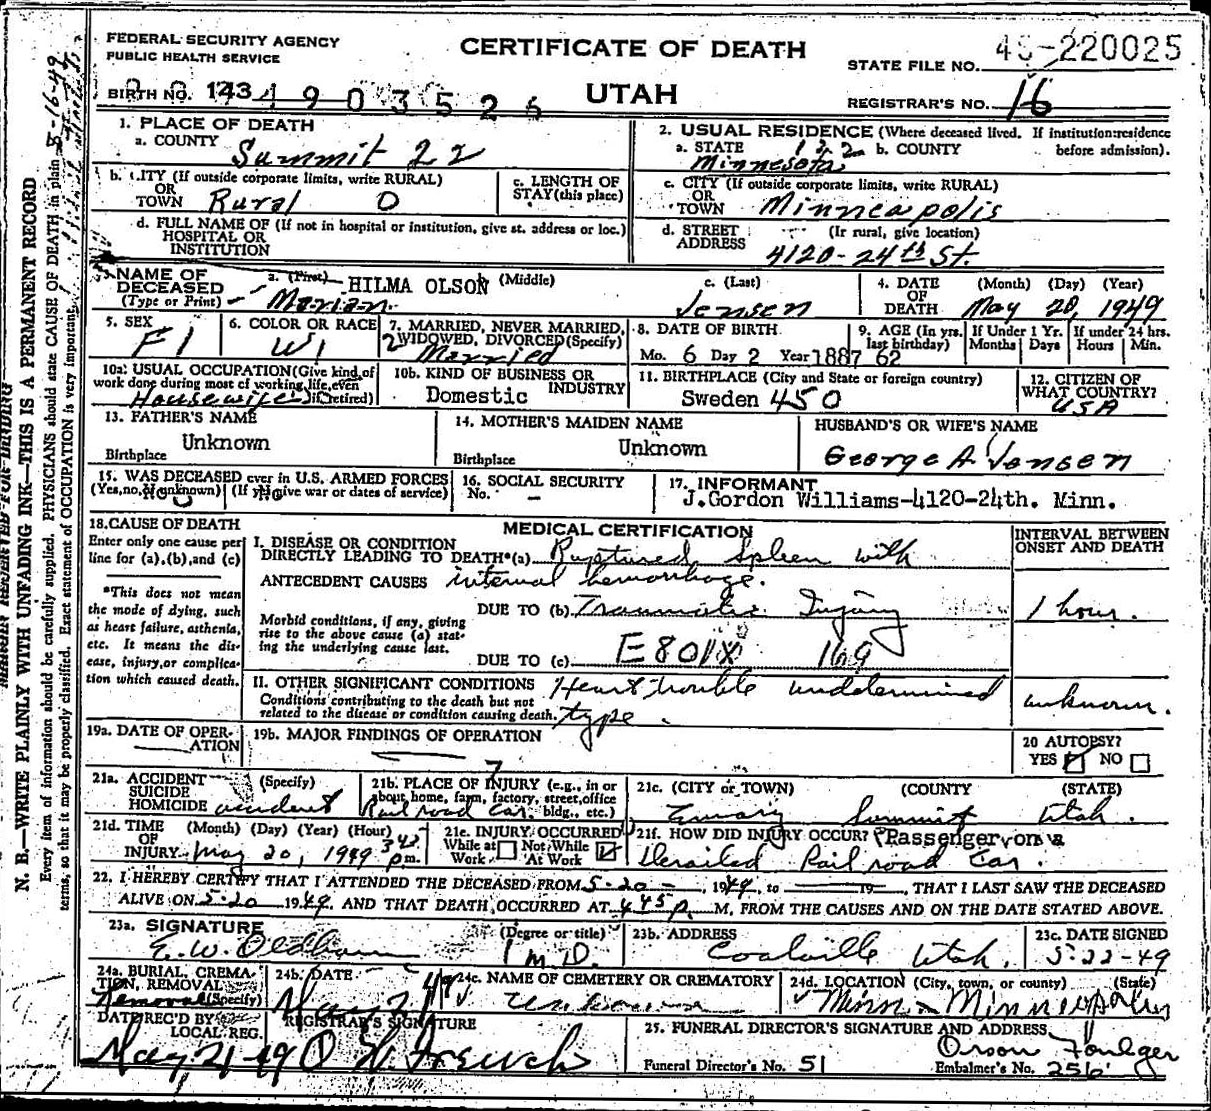 FEDERAL SECURITY AGENCY
PUBLIC HEALTH SERVICE
CERTIFICATE OF DEATH
STATE FILE NO. 220025
BIRTH NO. 143 4903526
UTAH
REGISTRAR'S NO. 16
1. PLACE OF DEATH
a. COUNTY Summit 22
2. USUAL RESIDENCE (Where deceased lived. If institution:residence before admission).
a. STATE Minnesota b. COUNTY
b. CITY (If outside corporate limits, write RURAL)
OR
TOWN Rural 0
c. LENGTH OF
STAY (this place)
c. CITY (If outside corporate limits, write RURAL)
OR
TOWN Minneapolis
d. FULL NAME OF (If not in hospital or institution, give st. address or loc.)
HOSPITAL OR
INSTITUTION
d. STREET (Ir rural, give location)
ADDRESS 4120-24th St.
3. NAME OF
DECEASED
(Type or Print)
a. (First) HILMA OLSON (Middle)
Marian
c. (Last)
Jensen
4. DATE
OF
DEATH
(Month) (Day) (Year)
May 20, 1949
5. SEX
F1
6. COLOR OR RACE
W1
7. MARRIED, NEVER MARRIED,
WIDOWED, DIVORCED (Specify)
2 Married
8. DATE OF BIRTH
Mo. 6 Day 2 Year 1887
9. AGE (In yrs. last birthday)
62
If Under 1 Yr.
Months Days
If under 24 hrs.
Hours Min.
10a. USUAL OCCUPATION (Give kind of
work done during most of working life, even
if retired)
Housewife
10b. KIND OF BUSINESS OR
INDUSTRY
Domestic
11. BIRTHPLACE (City and State or foreign country)
Sweden 450
12. CITIZEN OF
WHAT COUNTRY?
USA
13. FATHER'S NAME
Unknown
Birthplace
14. MOTHER'S MAIDEN NAME
Unknown
Birthplace
HUSBAND'S OR WIFE'S NAME
George A. Jensen
15. WAS DECEASED ever in U.S. ARMED FORCES
(Yes, no, unknown) (If yes, give war or dates of service)
No
16. SOCIAL SECURITY
No. -
17. INFORMANT
J.Gordon Williams-4120-24th. Minn.
18. CAUSE OF DEATH
Enter only one cause per
line for (a), (b), and (c)
*This does not mean
the mode of dying, such
as heart failure, asthenia,
etc. It means the dis-
ease, injury, or complica-
tion which caused death.
MEDICAL CERTIFICATION
INTERVAL BETWEEN
ONSET AND DEATH
I. DISEASE OR CONDITION
DIRECTLY LEADING TO DEATH*(a) Ruptured Spleen with
ANTECEDENT CAUSES internal hemorrhage.
DUE TO (b) Traumatic Injury
1 hour.
Morbid conditions, if any, giving
rise to the above cause (a) stat-
ing the underlying cause last.
DUE TO (c) E801X 169
II. OTHER SIGNIFICANT CONDITIONS
Conditions contributing to the death but not
related to the disease or condition causing death.
Heart trouble undetermined
type.
unknown.
19a. DATE OF OPER-
ATION
19b. MAJOR FINDINGS OF OPERATION
20 AUTOPSY?
YES NO
21a. ACCIDENT
SUICIDE
HOMICIDE
(Specify)
accident
21b. PLACE OF INJURY (e.g., in or
about home, farm, factory, street, office
bldg., etc.)
Rail road Car.
21c. (CITY or TOWN) (COUNTY (STATE)
Emory Summit Utah.
21d. TIME
OF
INJURY
(Month) (Day) (Year) (Hour)
May 20, 1949 3 42 pm.
21e. INJURY OCCURRED
While at
Work
Not While
At Work
21f. HOW DID INJURY OCCUR? (Passenger on a
Derailed Rail road Car.
22. I HEREBY CERTIFY THAT I ATTENDED THE DECEASED FROM 5-20-, 1949, to 19, THAT I LAST SAW THE DECEASED
ALIVE ON 5-20 1949, AND THAT DEATH OCCURRED AT 4 45 p. M, FROM THE CAUSES AND ON THE DATE STATED ABOVE.
23a. SIGNATURE (Degree or title)
E. W. Oldham M.D.
23b. ADDRESS
Coalville Utah.
23c. DATE SIGNED
5-22-49
24a. BURIAL, CREMA-
TION, REMOVAL
(Specify)
Removal
24b. DATE
May 21
24c. NAME OF CEMETERY OR CREMATORY
Unknown
24d. LOCATION (City, town, or county) (State)
Minn - Minneapolis
DATE REC'D BY
LOCAL REG.
May 21-49
REGISTRAR'S SIGNATURE
O W French
25. FUNERAL DIRECTOR'S SIGNATURE AND ADDRESS
Orson Foulger
Funeral Director's No. 51
Embalmer's No. 256
N. B.—WRITE PLAINLY WITH UNFADING INK—THIS IS A PERMANENT RECORD
Every item of information should be carefully supplied. PHYSICIANS should state CAUSE OF DEATH in plain
terms, so that it may be properly classified. Exact statement of OCCUPATION is very important.